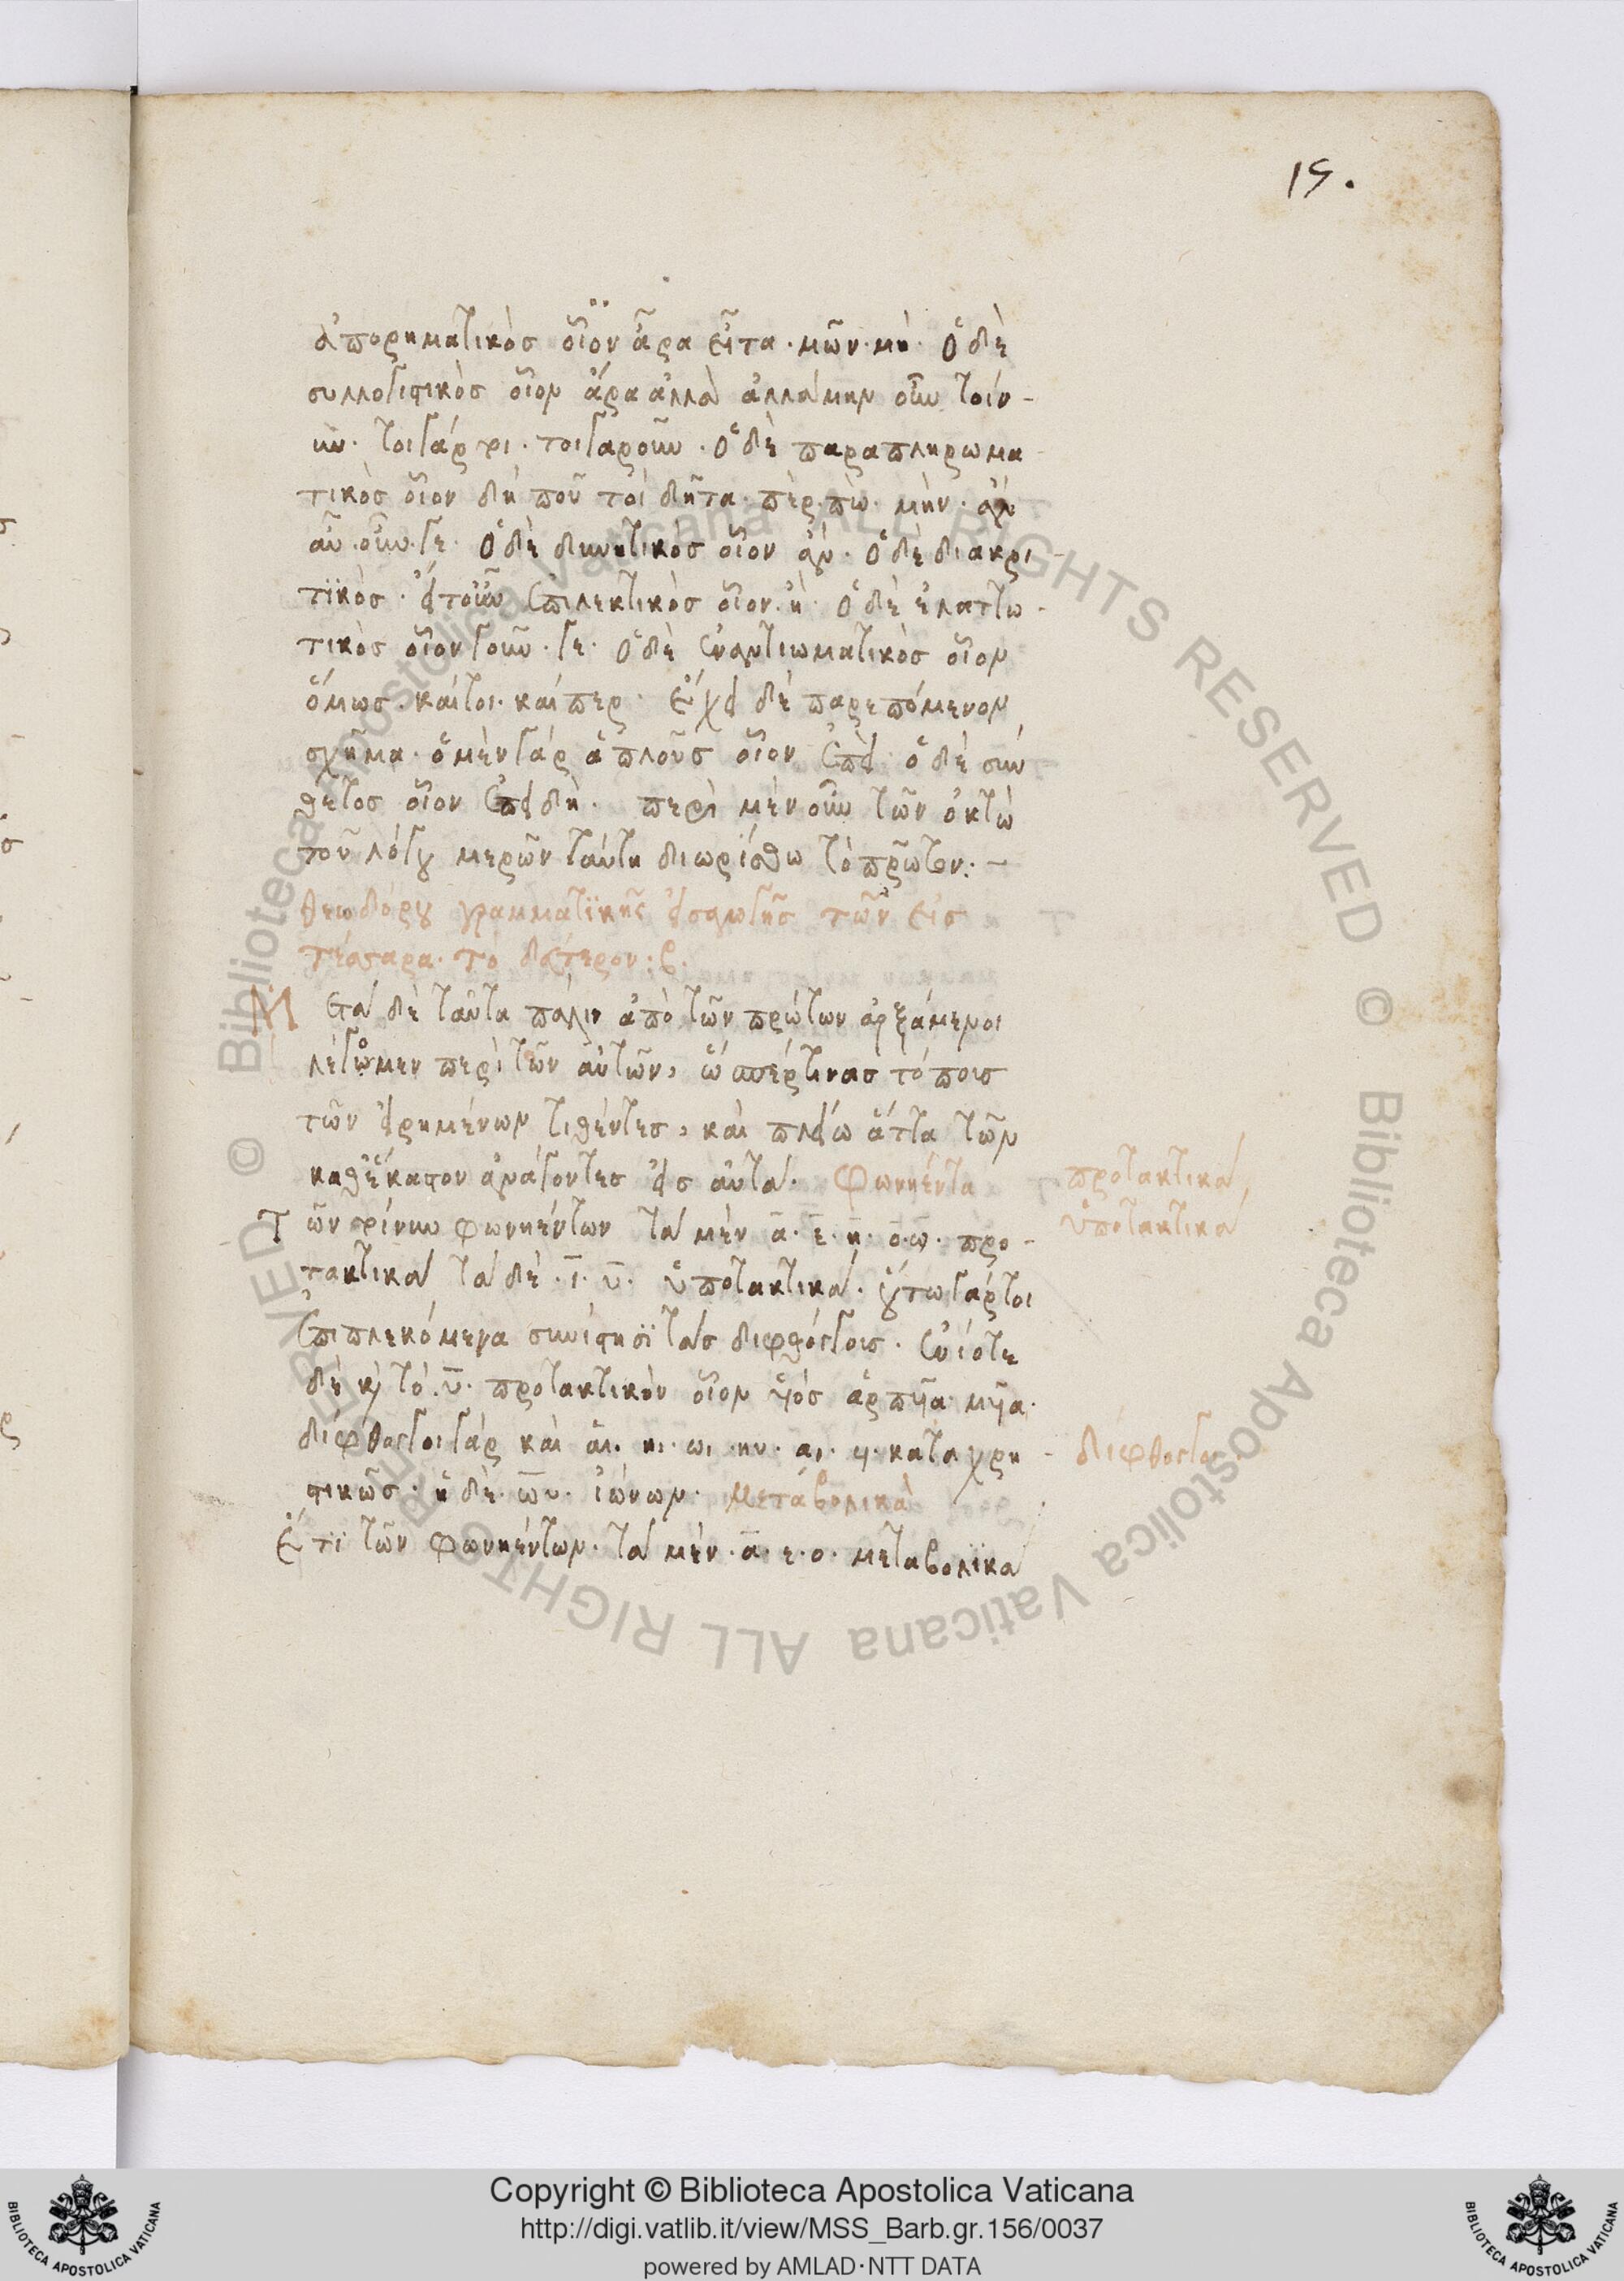 15.
ἀπορηματικὸσ οἷον ἆρα εἶτα · μῶν · μὴ · ὁ δὲ
συλλογιστικὸσ οἷον ἄρα ἀλλὰ ἀλλάμην οὖν τοίν-
υν · τοιγάρτοι · τοιγαροῦν · ὁ δὲ παραπληρωμα-
τικὸσ οἷον δή που τοί δῆτα · πὲρ · πὼ · μὴν · ἂν
αὖ · οὖν · γε · ὁ δὲ δυνητικὸσ οἷον ἄν · ὁ δὲ διακρι-
τϊκὸσ · εἴτουν ἐπιλεκτικὸσ οἷον · ἢ · ὁ δὲ ἐλαττω-
τικὸσ οἷον γοῦν · γε · ὁ δὲ ἐναντιωματικὸσ οἷον
ὅμωσ · καίτοι · καίπερ · ἔχει δὲ παρεπόμενον
σχῆμα · ὁ μὲν γάρ ἁπλοῦσ οἷον ἐπεὶ ὁ δὲ σύν
θετοσ οἷον ἐπειδή · περὶ μὲν οὖν τῶν ὀκτὼ
τοῦ λόγου μερῶν ταύτη διωρίσθω τὸ πρῶτον : –
θεοδώρου γραμματϊκῆς εἰσαγωγῆσ τῶν εἰσ
τέσσαρα · τὸ δεύτερον : β ·
Μετά δὲ ταῦτα πάλιν ἀπὸ τῶν πρώτων ἀρξάμενοι
λέγωμεν περὶ τῶν αὐτῶν, ὥσπερ τινασ τόποισ
τῶν εἰρημένων τιθέντεσ, καὶ πλείω ἄττα τῶν
καθέκαστον ἀνάγοντεσ εἰσ αὐτά · Φωνηέντα
προτακτικά,
ὑποτακτικά
Τῶν τοίνυν φωνηέντων τὰ μὲν α · ε · η · ο · ω · προ-
τακτικά τὰ δὲ · ι · υ · ὑποτακτικά · οὕτω γάρ τοι
ἐπιπλεκόμενα συνίστησϊ τὰσ διφθόγγοισ · ἐνίοτε
δὲ κ τὸ · υ · προτακτικὸν οἷον υἱόσ ἅρπυῖα · μυῖα ·
δίφθογγοι γάρ καὶ αι · ηι · ωι · ηυ · αι · υι · καταχρη-
διφθογγοι
στικῶσ · ἡ δὲ · ωυ · ἰώνων · μεταβολικὰ
Ἔτϊ τῶν φωνηέντων · τὰ μέν · α · ε · ο · μεταβολϊκα
Copyright © Biblioteca Apostolica Vaticana
http://digi.vatlib.it/view/MSS_Barb.gr.156/0037
powered by AMLAD·NTT DATA